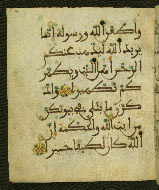 واطعن الله ورسوله انما
يريد الله ليذهب عنكم
الرجس اهل البيت ويطهر
كم تطهيرا واذ
كرن ما يتلى في بيوتكن
من ايت الله والحكمة ان
الله كان لطيفا خبيرا